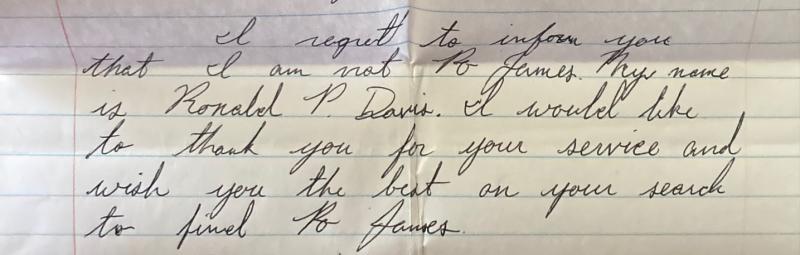 I regret to inform you
that I am not Po James. My name
is Ronald P. Davis. I would like
to thank you for your service and
wish you the best on your search
to find Po James.